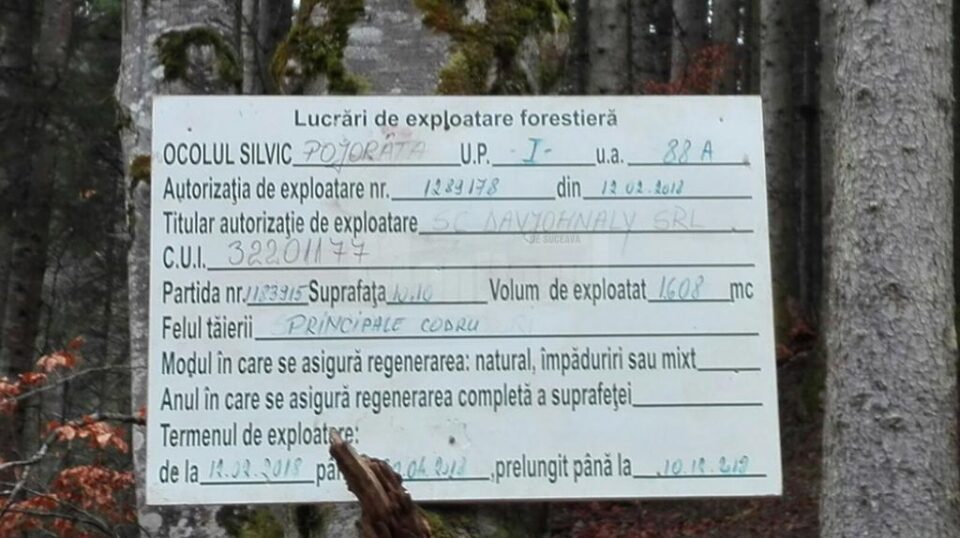 Lucrări de exploatare forestieră
OCOLUL SILVIC POJORÂTA U.P. -I- u.a. 88 A
Autorizaţia de exploatare nr. 1289178 din 12.02.2018
Titular autorizaţie de exploatare SC DAVJOHNALY SRL
DE SUCEAVA
C.U.I. 32201177
Partida nr. 1183915 Suprafaţa 10.10 Volum de exploatat 1608 mc
Felul tăierii PRINCIPALE CODRU
Modul în care se asigură regenerarea: natural, împăduriri sau mixt
Anul în care se asigură regenerarea completă a suprafeţei
Termenul de exploatare:
de la 12.02.2018 04.2018, prelungit până la 10.12.2018